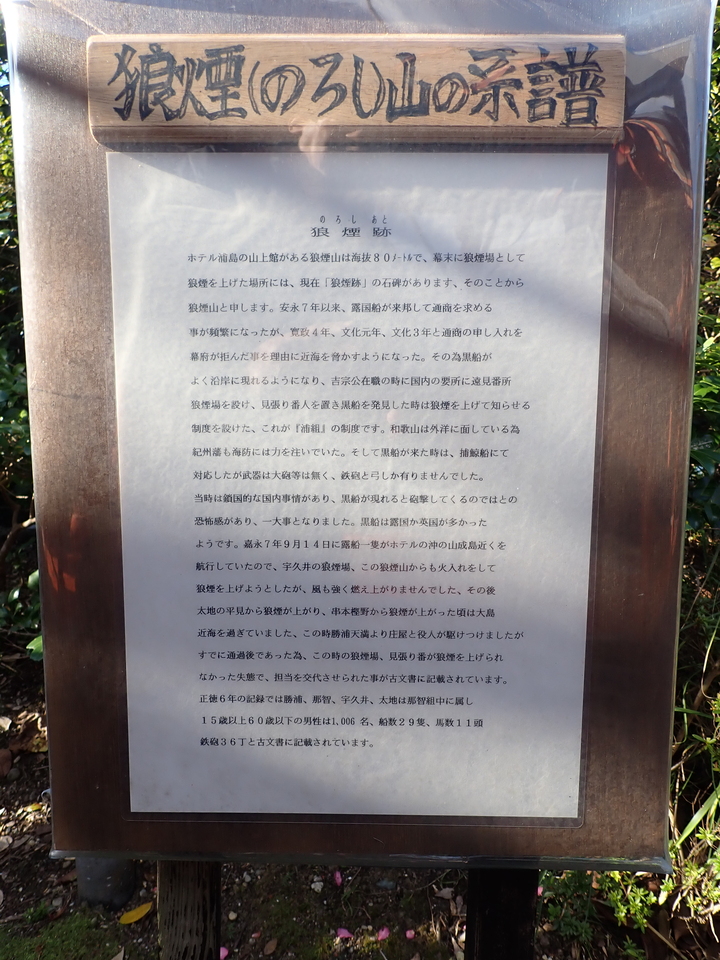 狼煙(のろし)山の系譜
のろし あと
狼煙跡
ホテル浦島の山上館がある狼煙山は海抜80メートルで、幕末に狼煙場として
狼煙を上げた場所には、現在「狼煙跡」の石碑があります、そのことから
狼煙山と申します。安永7年以来、露国船が来邦して通商を求める
事が頻繁になったが、寛政4年、文化元年、文化3年と通商の申し入れを
幕府が拒んだ事を理由に近海を脅かすようになった。その為黒船が
よく沿岸に現れるようになり、吉宗公在職の時に国内の要所に遠見番所
狼煙場を設け、見張り番人を置き黒船を発見した時は狼煙を上げて知らせる
制度を設けた、これが『浦組』の制度です。和歌山は外洋に面している為
紀州藩も海防には力を注いでいた。そして黒船が来た時は、捕鯨船にて
対応したが武器は大砲等は無く、鉄砲と弓しか有りませんでした。
当時は鎖国的な国内事情があり、黒船が現れると砲撃してくるのではとの
恐怖感があり、一大事となりました。黒船は露国か英国が多かった
ようです。嘉永7年9月14日に露船一隻がホテルの沖の山成島近くを
航行していたので、宇久井の狼煙場、この狼煙山からも火入れをして
狼煙を上げようとしたが、風も強く燃え上がりませんでした、その後
太地の平見から狼煙が上がり、串本樫野から狼煙が上がった頃は大島
近海を過ぎていました、この時勝浦天満より庄屋と役人が駆けつけましたが
すでに通過後であった為、この時の狼煙場、見張り番が狼煙を上げられ
なかった失態で、担当を交代させられた事が古文書に記載されています。
正徳6年の記録では勝浦、那智、宇久井、太地は那智組中に属し
15歳以上60歳以下の男性は1,006 名、船数29隻、馬数11頭
鉄砲36丁と古文書に記載されています。